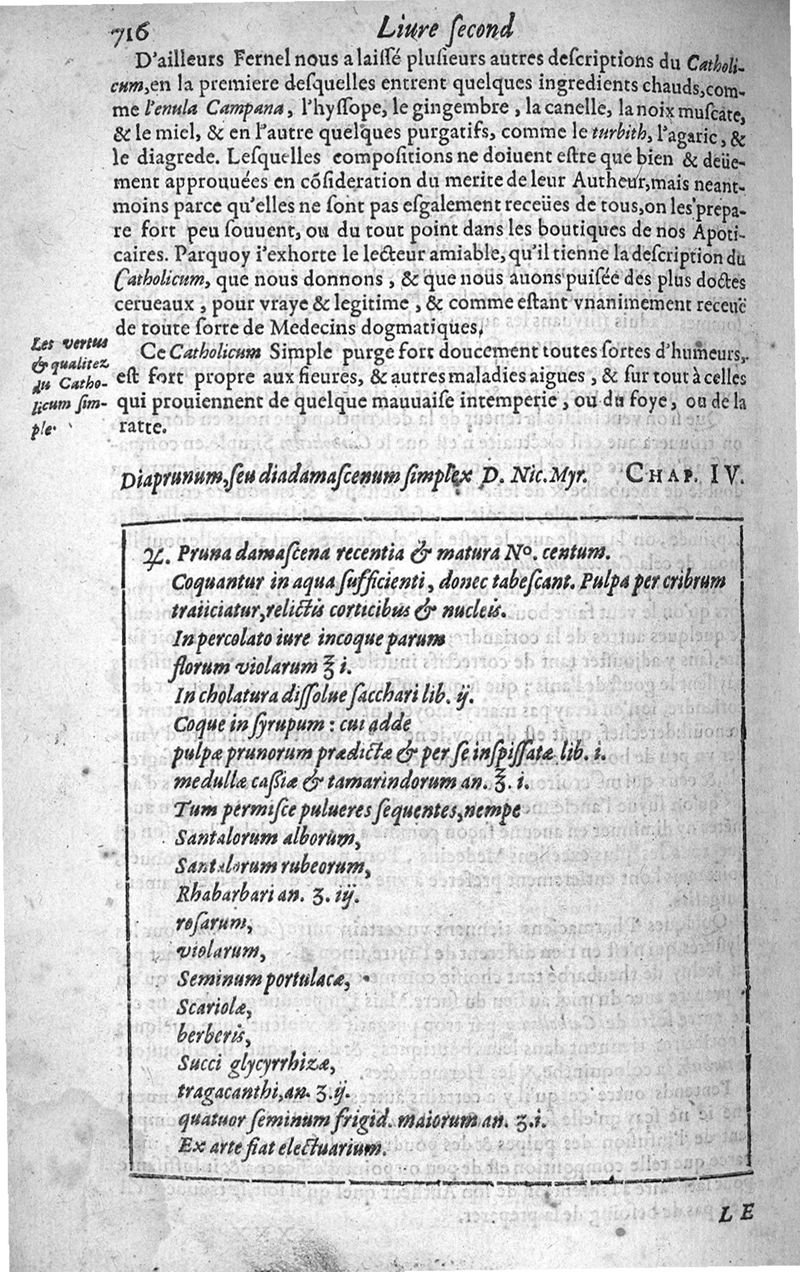 716 Liure ſecond
D'ailleurs Fernel nous a laiſſé pluſieurs autres deſcriptions du Catholi-
cum, en la premiere deſquelles entrent quelques ingredients chauds, com-
me l'enula Campana, l'hyſſope, le gingembre, la canelle, la noix muſcate,
& le miel, & en l'autre quelques purgatifs, comme le turbith, l'agaric, &
le diagrede. Leſquelles compoſitions ne doiuent eſtre que bien & deüe-
ment approuuées en cõſideration du merite de leur Autheur, mais neant-
moins parce qu'elles ne ſont pas eſgalement receües de tous, on les prepa-
re fort peu ſouuent, ou du tout point dans les boutiques de nos Apoti-
caires. Parquoy i'exhorte le lecteur amiable, qu'il tienne la deſcription du
Catholicum, que nous donnons, & que nous auons puiſée des plus doctes
cerueaux, pour vraye & legitime, & comme eſtant vnanimement receuë
de toute ſorte de Medecins dogmatiques.
Les vertus
& qualitez
du Catho-
licum ſim-
ple.
Ce Catholicum Simple purge fort doucement toutes ſortes d'humeurs,
eſt fort propre aux fieures, & autres maladies aigues, & ſur tout à celles
qui prouiennent de quelque mauuaiſe intemperie, ou du foye, ou de la
ratte.
Diaprunum, ſeu diadamaſcenum ſimplex D. Nic. Myr. CHAP. IV.
♃. Pruna damaſcena recentia & matura Nº. centum.
Coquantur in aqua ſufficienti, donec tabeſcant. Pulpa per cribrum
traiiciatur, relictis corticibus & nucleis.
In percolato iure incoque parum
florum violarum ℥ i.
In cholatura diſſolue ſacchari lib. ij.
Coque in ſyrupum : cui adde
pulpæ prunorum prædictæ & per ſe inſpiſſatæ lib. i.
medullæ caßiæ & tamarindorum an. ℥. i.
Tum permiſce pulueres ſequentes, nempe
Santalorum alborum,
Santalorum rubeorum,
Rhabarbari an. ʒ. iij.
roſarum,
violarum,
Seminum portulacæ,
Scariolæ,
berberis,
Succi glycyrrhizæ,
tragacanthi, an. ʒ. ij.
quatuor ſeminum frigid. maiorum an. ʒ. i.
Ex arte fiat electuarium.
LE